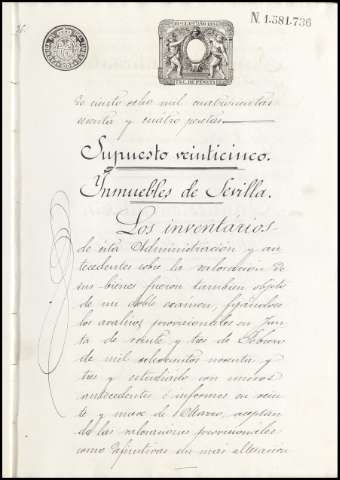 N. 1.581.736
de ciento ocho mil cuatrocientas
y cuatro pesetas
Supuesto veinticinco.
Inmuebles de Sevilla.
Los inventarios
de esta Administración y an-
tecedentes sobre la valoración de
sus bienes fueron tambien objeto
de un doble exámen, fijándose
los avalúos provisionales en Jun-
ta de veinte y tres de Febrero
de mil ochocientos noventa y
tres y estudiado con nuevos
antecedentes é informes en vein-
te y nueve de Marzo, aceptan-
do las valoraciones provisionales
como definitivas sin más alteración